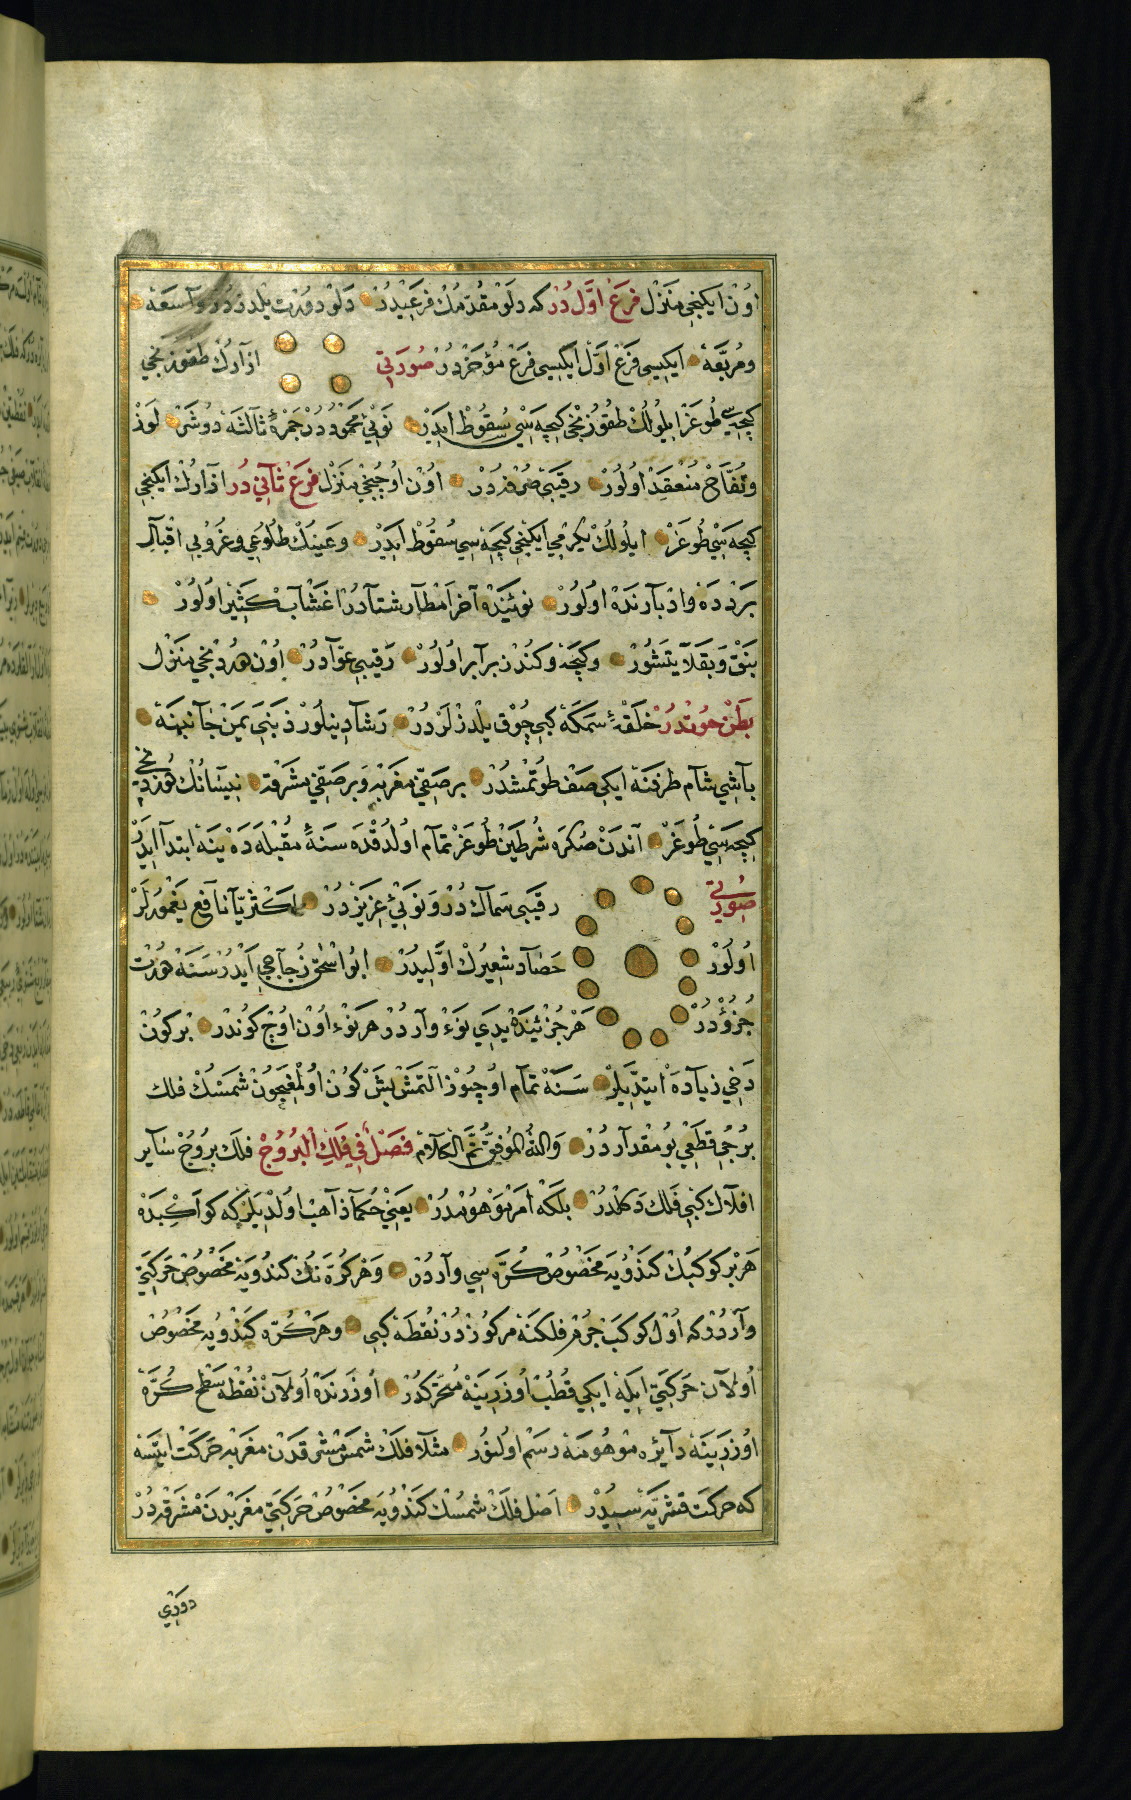 اون ایکنجی منزل فرغ اول در که دلو مقدمك فرعیدر دلو دورت یلدزدر واسعه
ومربعه ایکیسی فرغ اول ایکیسی فرغ مؤخردر صورتی اذارك طقوزنجی
کیجه سی طوغر ایلولك طقوزنجی کیجه سی سقوط ایدر نوئی محموددر جمرۀ ثالثه دوشر لوز
وتفاح منعقد اولور رقیبی صرفه در اون اوچنجی منزل فرغ ثانی در اذارك ایکنجی
کیجه سی طوغر ایلولك یکرمی ایکنجی کیجه سی سقوط ایدر وعینك طلوعی وغروبی اقبال
برد ده وادبارنده اولور نوئینده آخر امطار شتادر اعشاب کثیر اولور
بنق وبقلا یتشور وکیجه وکندز برابر اولور رقیبی عوادر اون دردنجی منزل
بطن حوتدر خلقۀ سمکه کبی چوق یلدزلردر رشا دینلور ذنبی یمن جانبنه
باشی شام طرفنه ایکی صف طوتمشدر بر صفی مغربه وبر صفی مشرقه نیسانك دردنجی
کیجه سی طوغر آندن صکره شرطین طوغر تمام اولدقده سنۀ مقبله ده ینه ابتدا ایدر
صورتی رقیبی سماك در ونوئی عزیزدر اکثریا نافع یغمورلر
اولور حصاد شعیرك اولیدر ابو اسحق زجاجی ایدر سنه درت
جزؤدر هر جزئینده یدی نوء واردر هر نوء اون اوچ کوندر بر کون
دخی زیاده ایتدیلر سنه تمام اوچیوز التمش بش کون اولمغیچون شمسك فلك
بروجی قطعی بو مقداردر والله الموفق ثم الکلام فصل فی فلك البروج فلك بروج سایر
افلاك کبی فلك دکلدر بلکه امر موهومدر یعنی حکما ذاهب اولدیلر که کواکبده
هر بر کوکبك کندویه مخصوص کره سی واردر وهر کره نك کندویه مخصوص حرکتی
واردر که اول کوکب جرم فلکنه مرکوزدر نقطه کبی وهر کره کندویه مخصوص
اولان حرکتی ایله ایکی قطب اوزرینه متحرکدر اوزرنده اولان نقطه سطح کره
اوزرینه دایره موهومه رسم اولنور مثلا فلك شمس مشرقدن مغربه حرکت ایتسه
که حرکت قسریه سیدر اصل فلك شمسك کندویه مخصوص حرکتی مغربدن مشرقه در
دوری